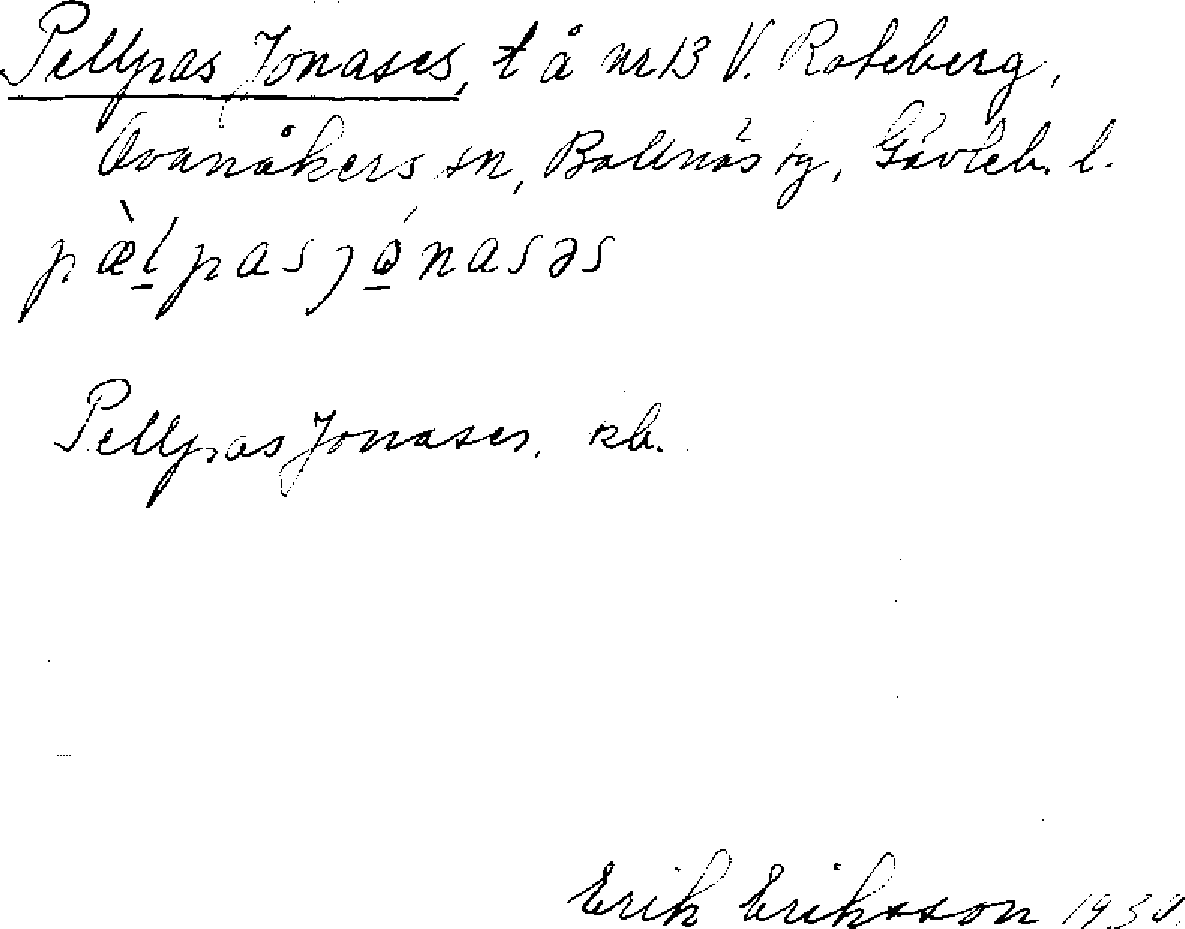 Pellpas Jonases, t å nr 13 V. Roteberg,
Ovanåkers sn, Bollnäs tg, Gävleb. l.
pæ̀l̠pasjǫ́nasəs
Pellpas Jonases, kb.
Erik Eriksson